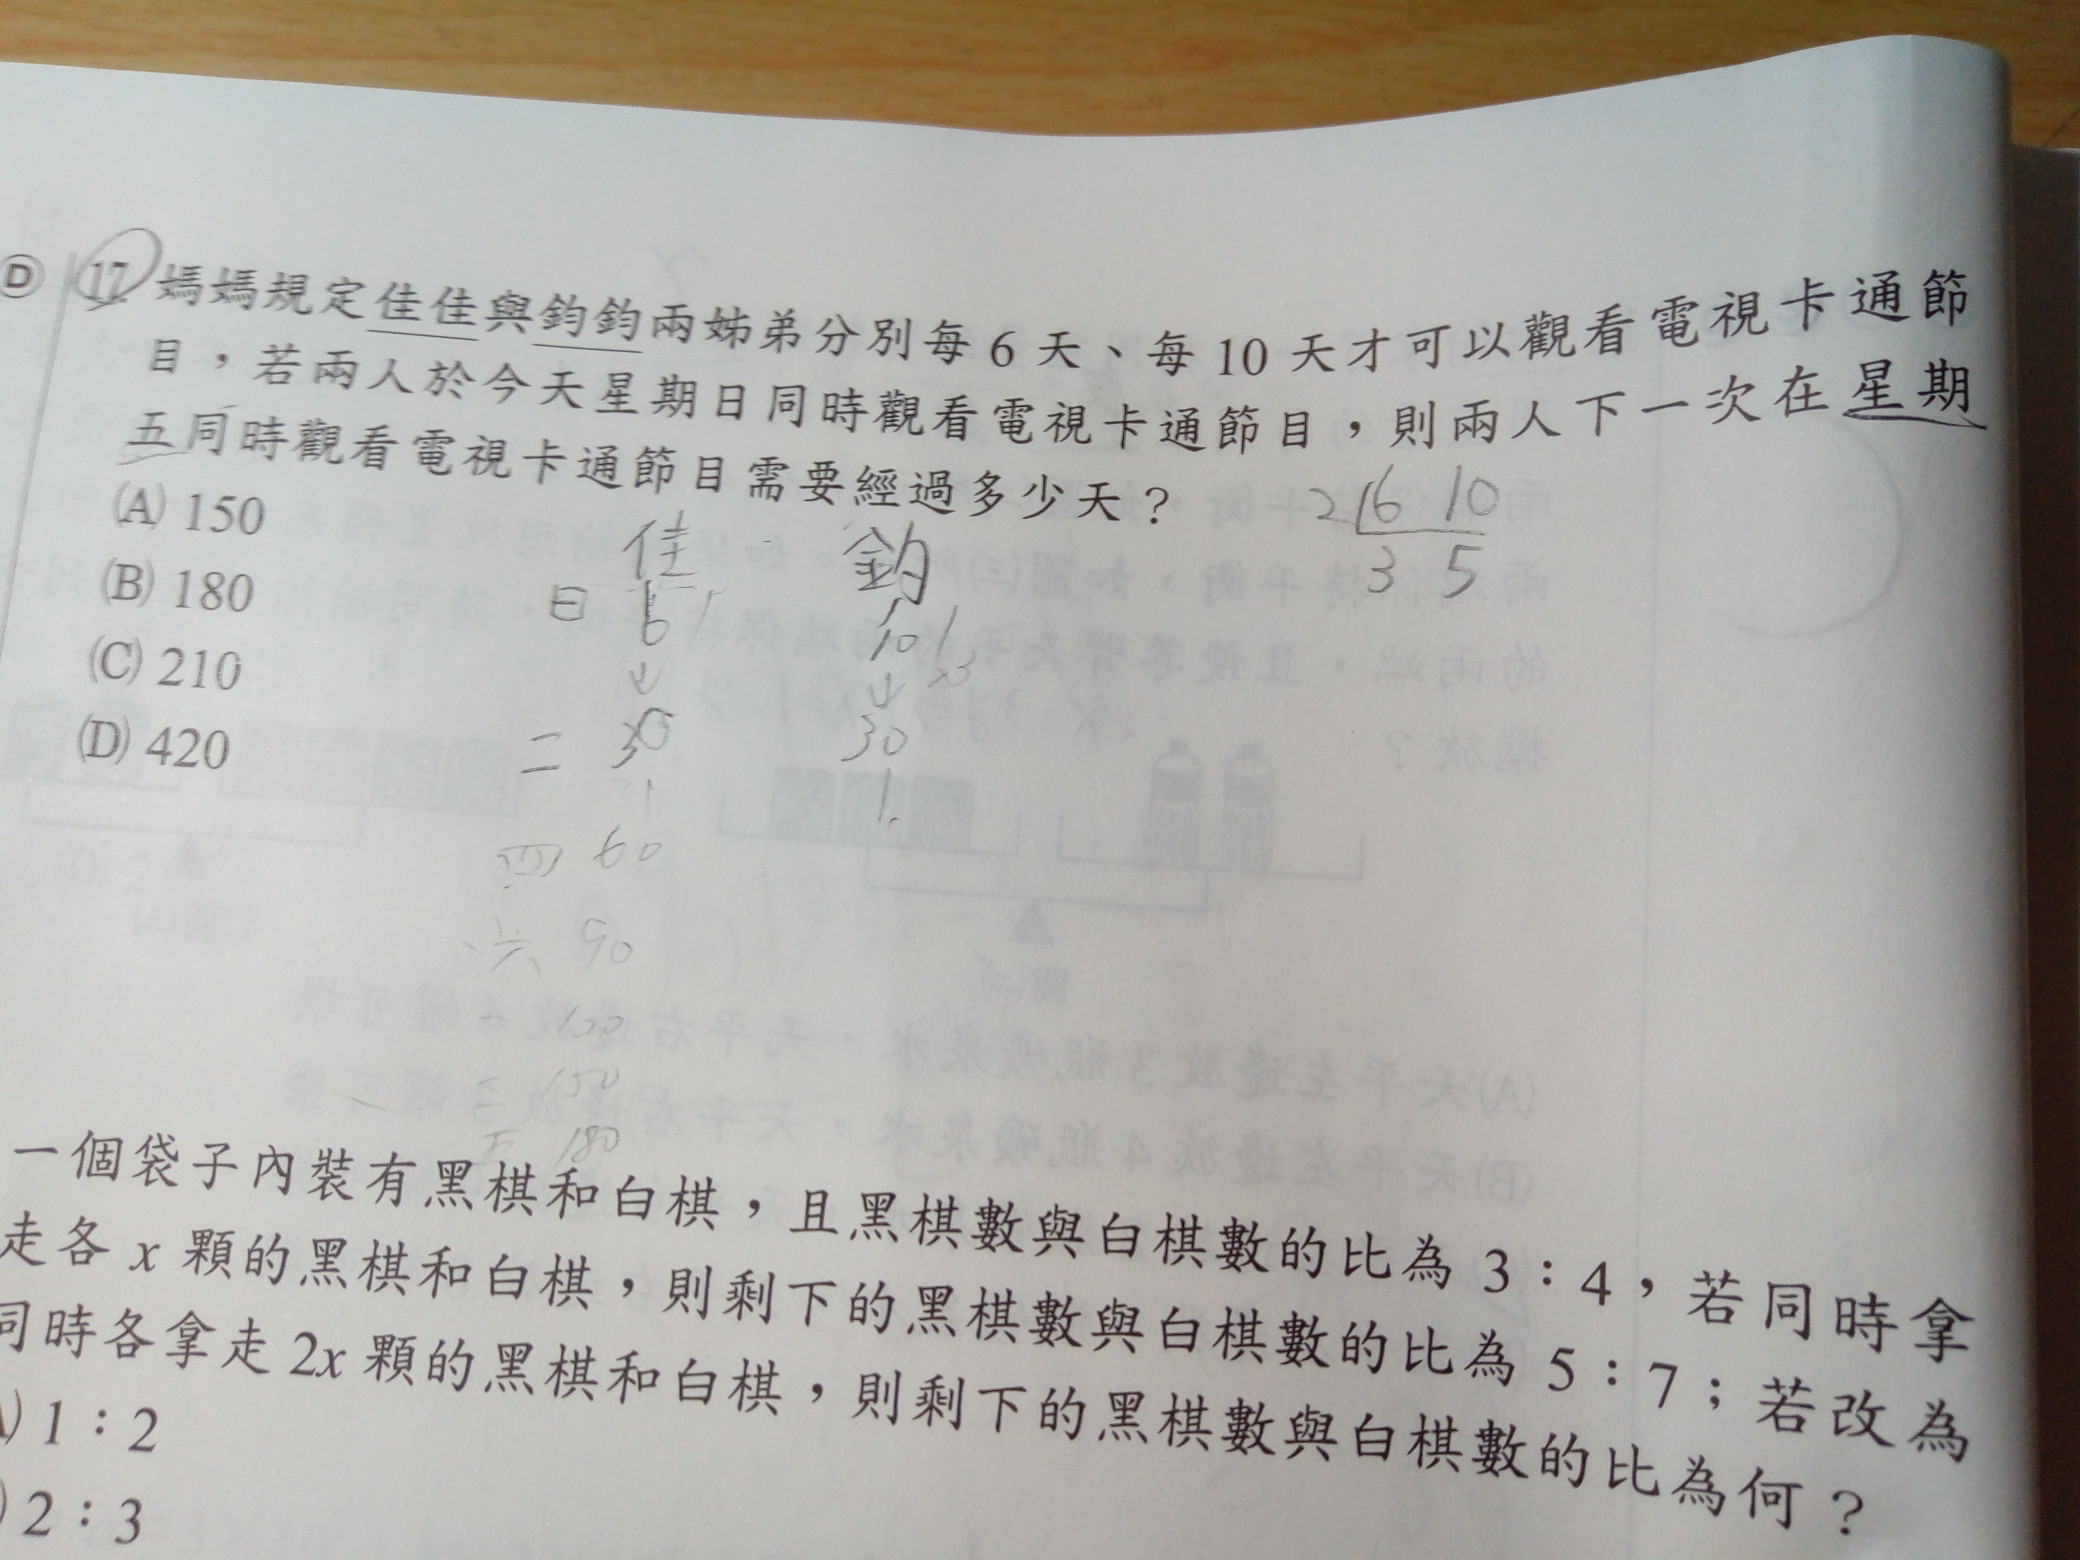 D 17 媽媽規定佳佳與鈞鈞兩姊弟分別每 6 天、每 10 天才可以觀看電視卡通節
目,若兩人於今天星期日同時觀看電視卡通節目,則兩人下一次在星期
五同時觀看電視卡通節目需要經過多少天?
(A) 150
(B) 180
(C) 210
(D) 420
2 6 10
3 5
佳 鈞
日 6 10
二 30 30
四 60
六 90
一 120
三 150
五 180
一個袋子內裝有黑棋和白棋,且黑棋數與白棋數的比為 3:4,若同時拿
走各 x 顆的黑棋和白棋,則剩下的黑棋數與白棋數的比為 5:7;若改為
同時各拿走 2x 顆的黑棋和白棋,則剩下的黑棋數與白棋數的比為何?
) 1:2
) 2:3